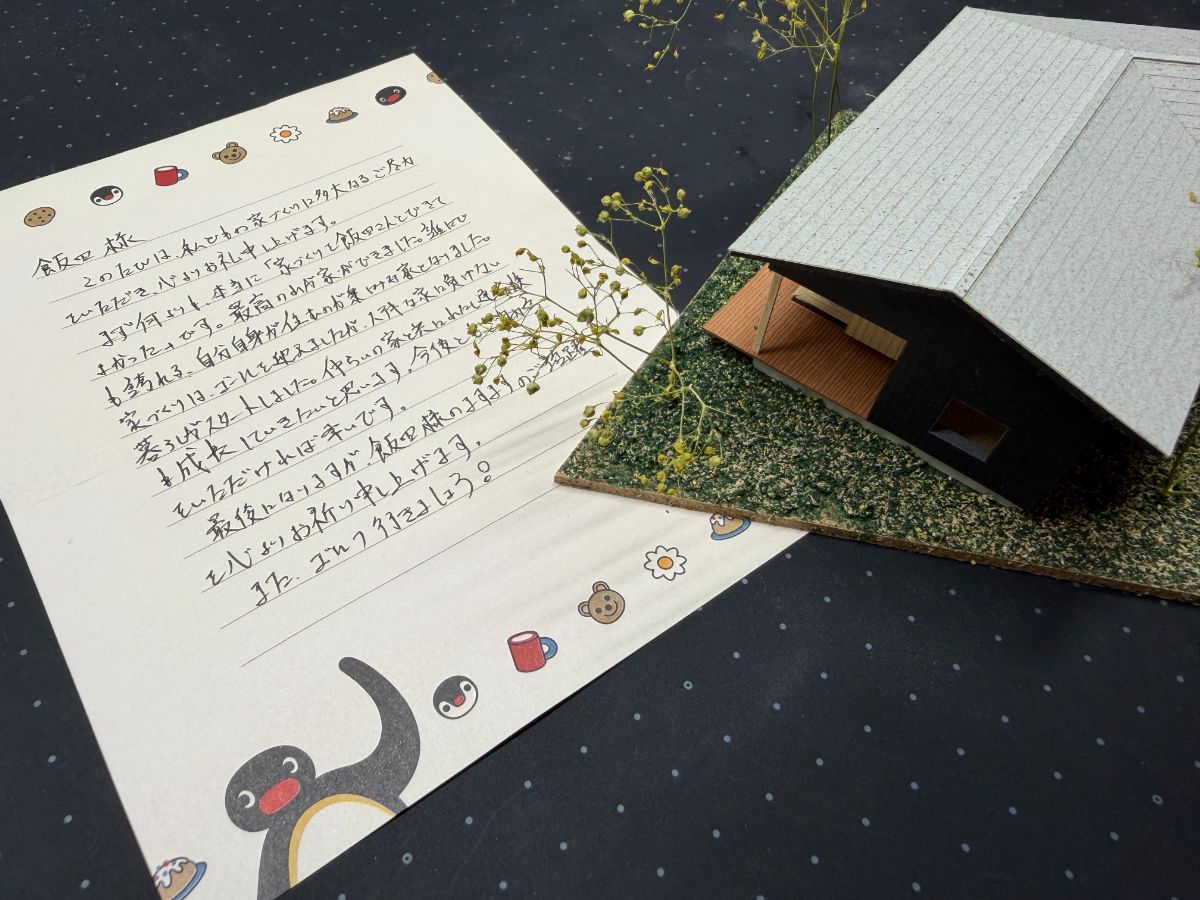 飯田 様
このたびは、私どもの家づくりに多大なるご尽力
いただき、心よりお礼申し上げます。
まず何よりも、本当に「家づくりを飯田さんとできて
よかった」です。最高のわが家ができました。誰にで
も誇れる、自分自身が住むのが楽しみな家となりました。
家づくりは、ゴールを迎えましたが、大切な家に負けない
暮らしがスタートしました。
も成長していきたいと思います。今後とも
いただければ幸いです。
最後になりますが、飯田様のますますのご活躍
を心よりお祈り申し上げます。
また、ゴルフ行きましょう!